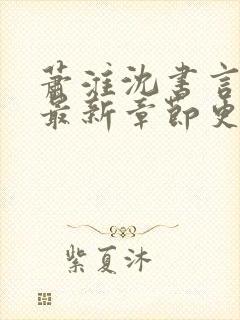 萧淮沈书言
最新章节更
紫夏沐